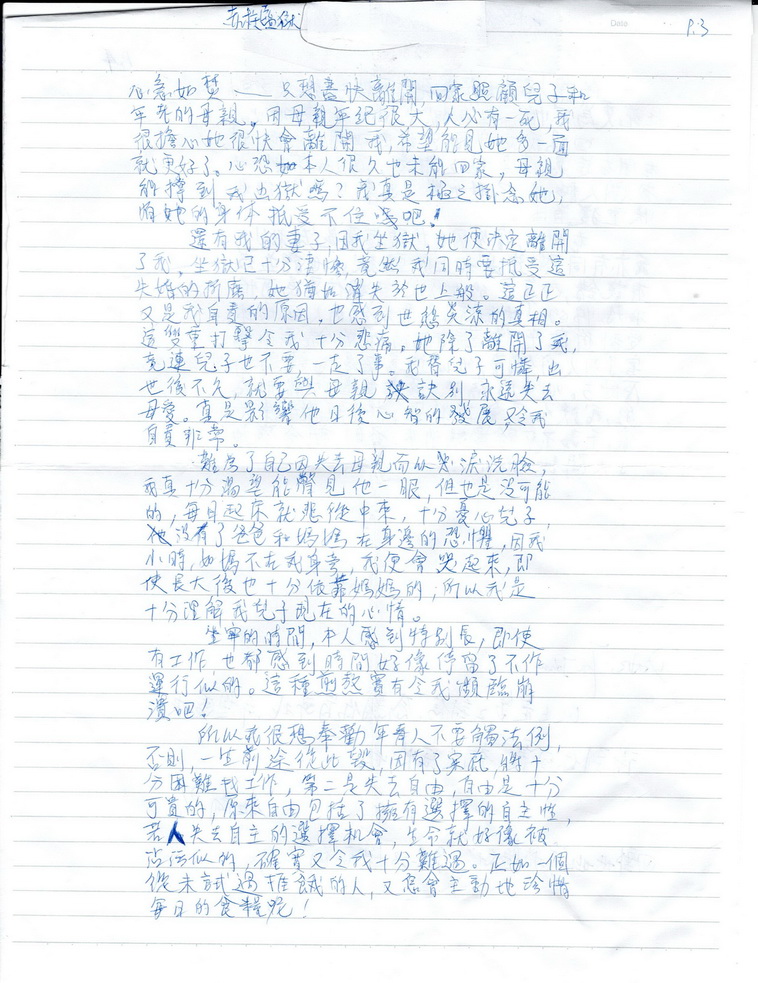 赤柱監獄
P.3
心急如焚 —— 只想盡快離開,回家照顧兒子和
年老的母親。因母親年紀很大,人心有一死,我
很擔心她很快會離開我,希望能見她多一面
就更好了。心恐如本人很久也未能回家,母親
能撐到我出獄嗎?我真是極之掛念她,
怕她的身体抵受不住嘆吧!
還有我的妻子,因我坐獄,她便決定離開
了我。坐獄已十分淒慘,竟然我同時要抵受這
失婚的折磨,她猶如消失於世上般。這正正
又是我自責的原因。也感到世態炎涼的真相。
這雙重打擊令我十分悲痛。她除了離開了我,
竟連兒子也不要,一走了事。我替兒子可憐,出
世後不久,就要與母親訣別,永遠失去
母愛。真是影響他日後心智的發展,令我
自責非常。
難為了自己因失去母親而以淚洗臉,
我真十分渴望能見他一眼,但也是沒可能
的,每日起床就悲從中來,十分憂心兒子,
沒有了爸爸和媽媽在身邊的恐懼,因我
小時,如媽不在我身旁,我便會哭起來,即
使長大後也十分依靠媽媽的;所以我是
十分理解我兒子現在的心情。
坐牢的時間,本人感到特別長,即使
有工作,也都感到時間好像停留了不作
運行似的。這種煎熬實有令我瀕臨崩
潰吧!
所以我很想奉勸年青人不要觸法例,
否則,一生前途從此毀,因有了案底,將十
分困難找工作,第二是失去自由,自由是十分
可貴的,原來自由包括了擁有選擇的自主性,
若人失去自主的選擇機會,生命就好像被
沾污似的,確實又令我十分難過。正如一個
從未試過捱餓的人,又怎會主動地珍惜
每日的食糧呢!